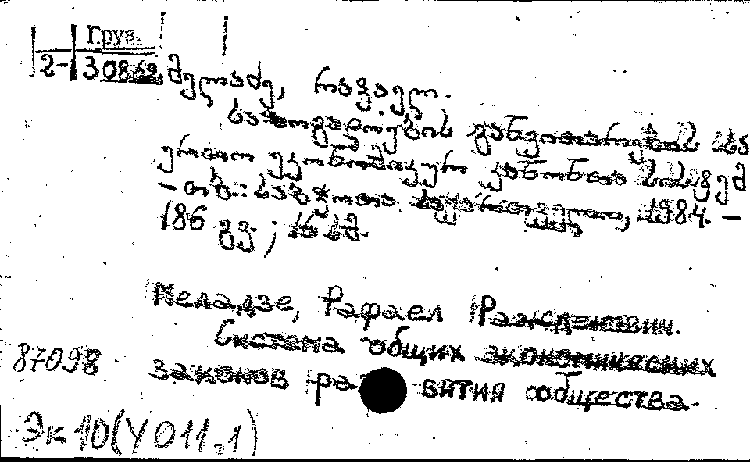 Груз.
2- 3 0869
მელაძე, რაფაელ.
საზოგადოების განვითარების სა
ერთო ეკონომიკურ კანონთა სისტემ
-თბ.: საბჭოთა საქართველო, 1984. -
186 გვ; 16 სმ.
Меладзе, Рафаел Ражденович.
Система общих экономических
87098
законов развития общества.
Эк 10(У011.1)